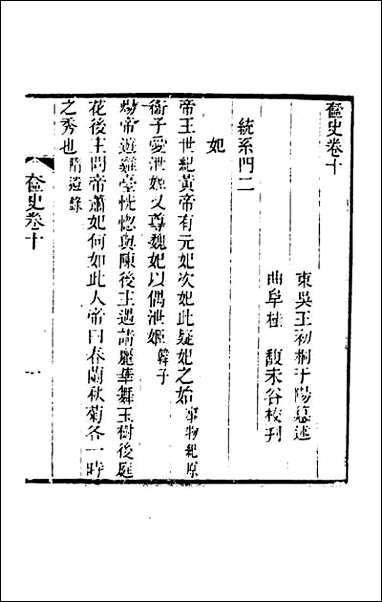 奩史卷十
東吳王初桐于陽纂述
曲阜桂　馥未谷校刋
統系門二
妃
帝王世紀黃帝有元妃次妃此疑妃之始事物紀原
衛子愛泄姬又尊魏妃以偶泄姬韓子
煬帝遊雞臺恍惚與陳後主遇請麗華舞玉樹後庭
花後主問帝蕭妃何如此人帝曰春蘭秋菊各一時
之秀也隋遺錄
奩史卷十
一